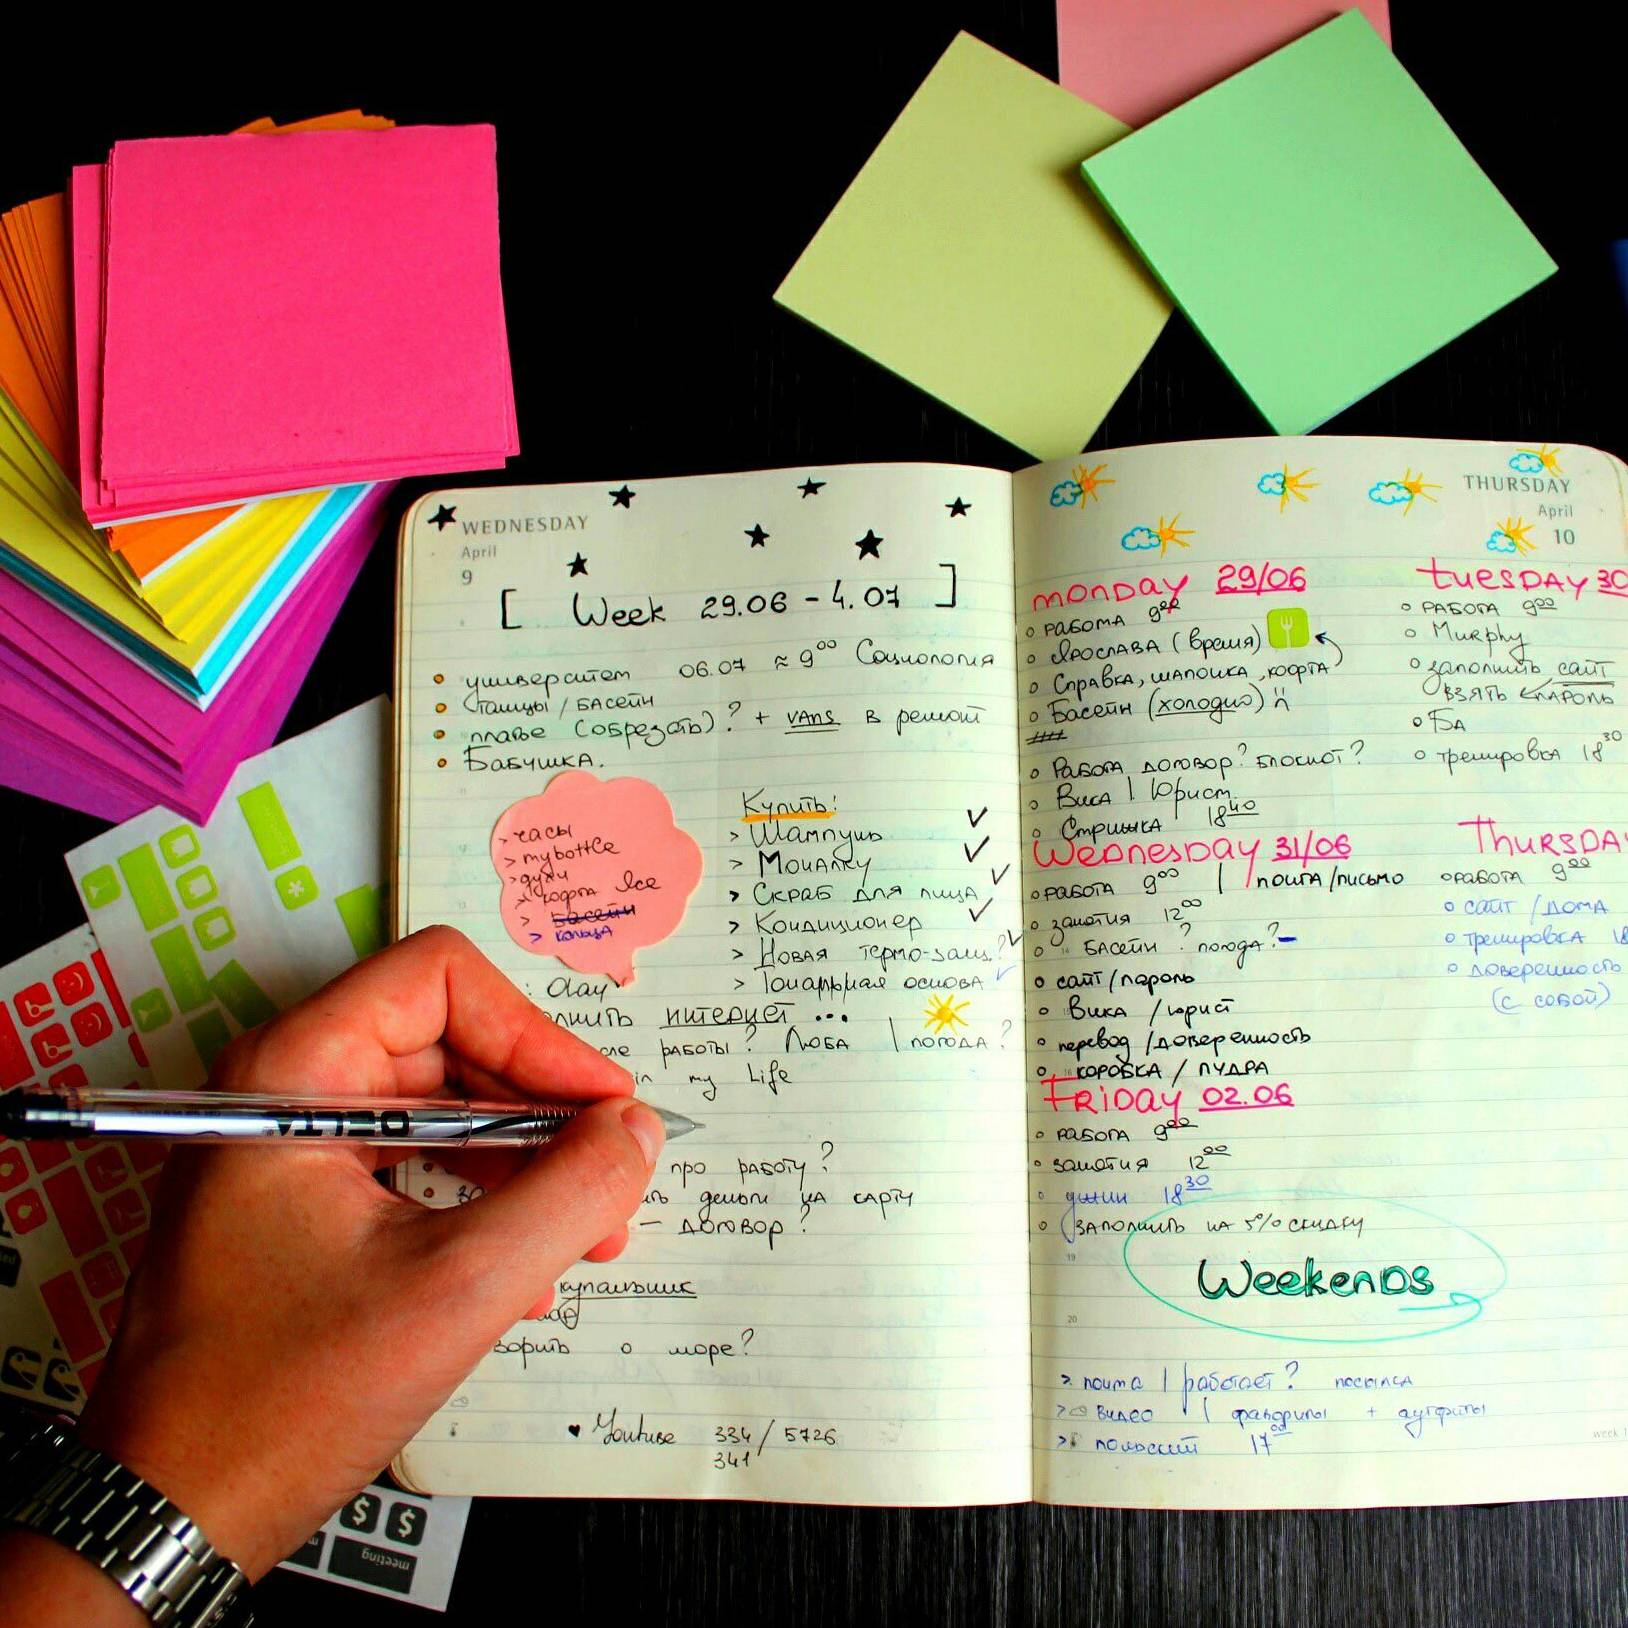 WEDNESDAY
April
9
[ Week 29.06 - 4.07 ]
университет 06.07 ≈ 9⁰⁰ Социология
танцы / басейн
платье (обрезать)? + vans в ремонт
Бабушка.
> часы
> my bottle
> духи
> кофта
> басейн
> кольца
Купить:
> Шампунь ✓
> Мочалку ✓
> Скраб для лица ✓
> Кондиционер ✓
> Новая термо-защ.? ✓
> Тональная основа ✓
: Olay
интернет ...
работы? Люба | погода?
in my Life
про работу?
деньги на карту
— договор?
купальник
о море?
♥ Youtube 334 / 5726
341
THURSDAY
April
10
monday 29/06
работа 9⁰⁰
Ярослава (время)
Справка, шапочка, кофта
Басейн (холодно)
Работа договор? блокнот?
Вика | Юрист
Стрижка 18⁴⁰
Tuesday 30
работа 9⁰⁰
Murphy
заполнить сайт
взять пароль
БА
тренировка 18³⁰
Wednesday 31/06
работа 9⁰⁰ | почта/письмо
занятия 12⁰⁰
басейн? погода? -
сайт/пароль
Вика / юрист
перевод / доверенность
коробка / пудра
Thursday
работа 9⁰⁰
сайт / дома
тренировка 18
доверенность
(с собой)
Friday 02.06
работа 9⁰⁰
занятия 12⁰⁰
ужин 18³⁰
заполнить на 5% скидку
Weekends
> почта | работает? посылка
> видео | фавориты + аутфиты
> польский 17⁰⁰
week 1
DELTA
meeting
$ $